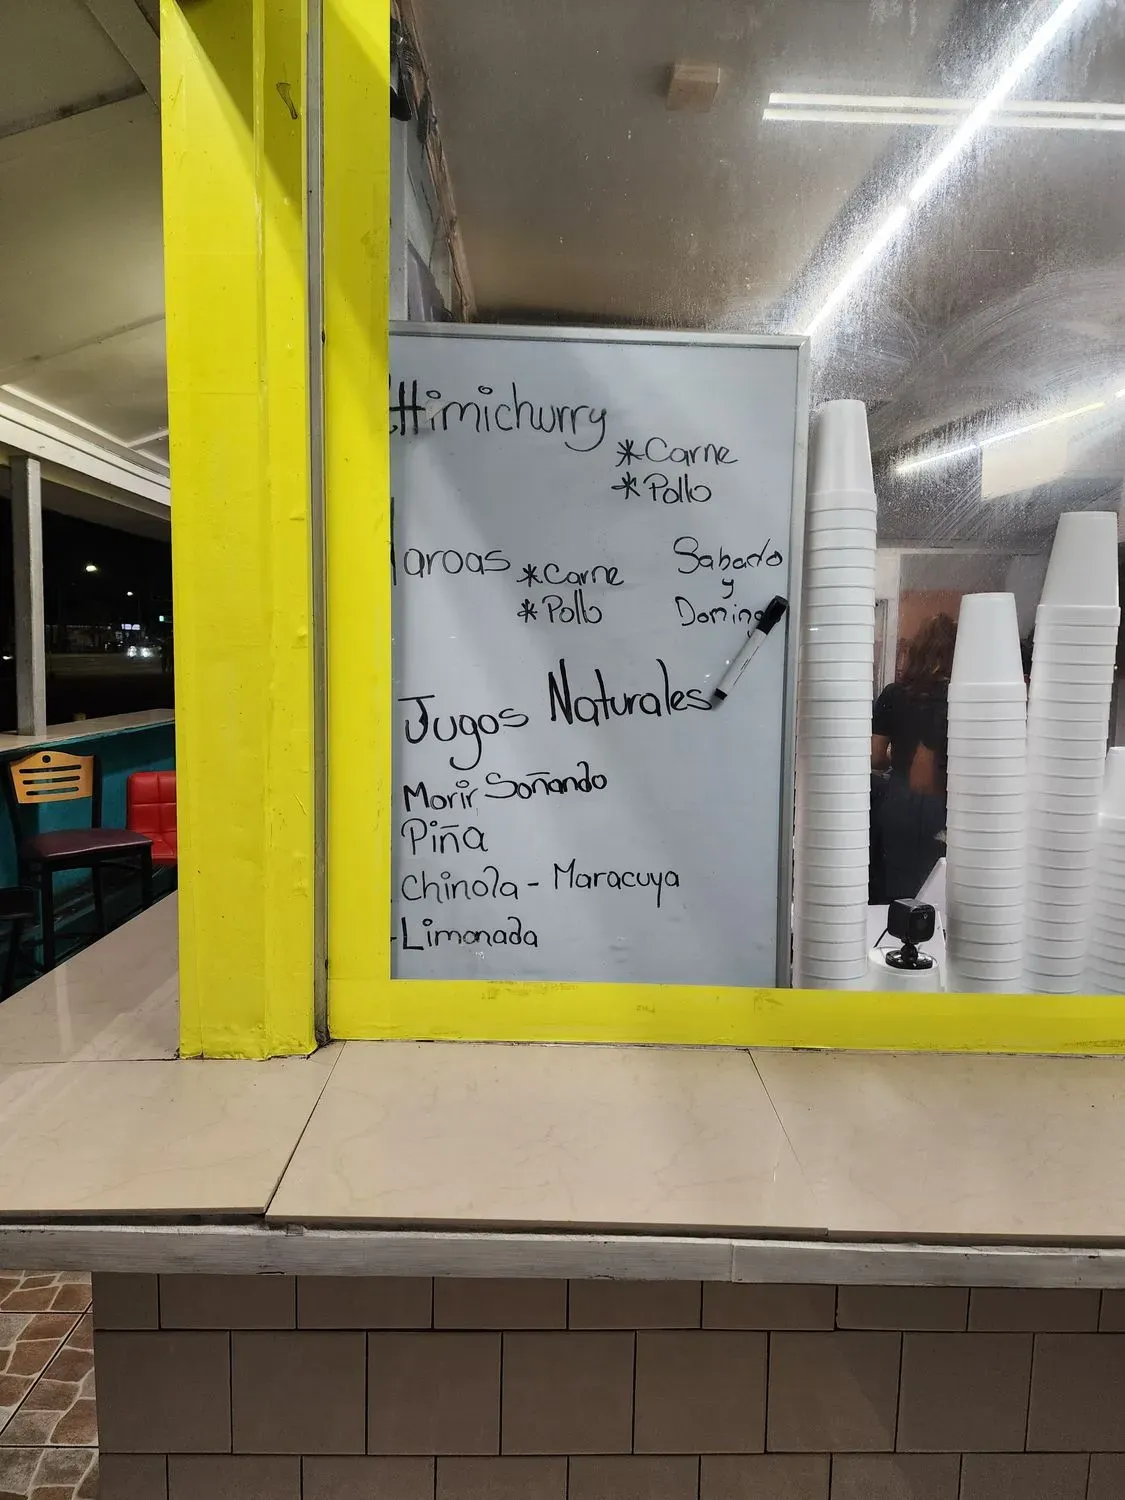 Himichurry
*Carne
*Pollo
aroas *Carne
*Pollo
Sabado
y
Doming
Jugos Naturales
Morir Soñando
Piña
Chinola - Maracuya
-Limonada